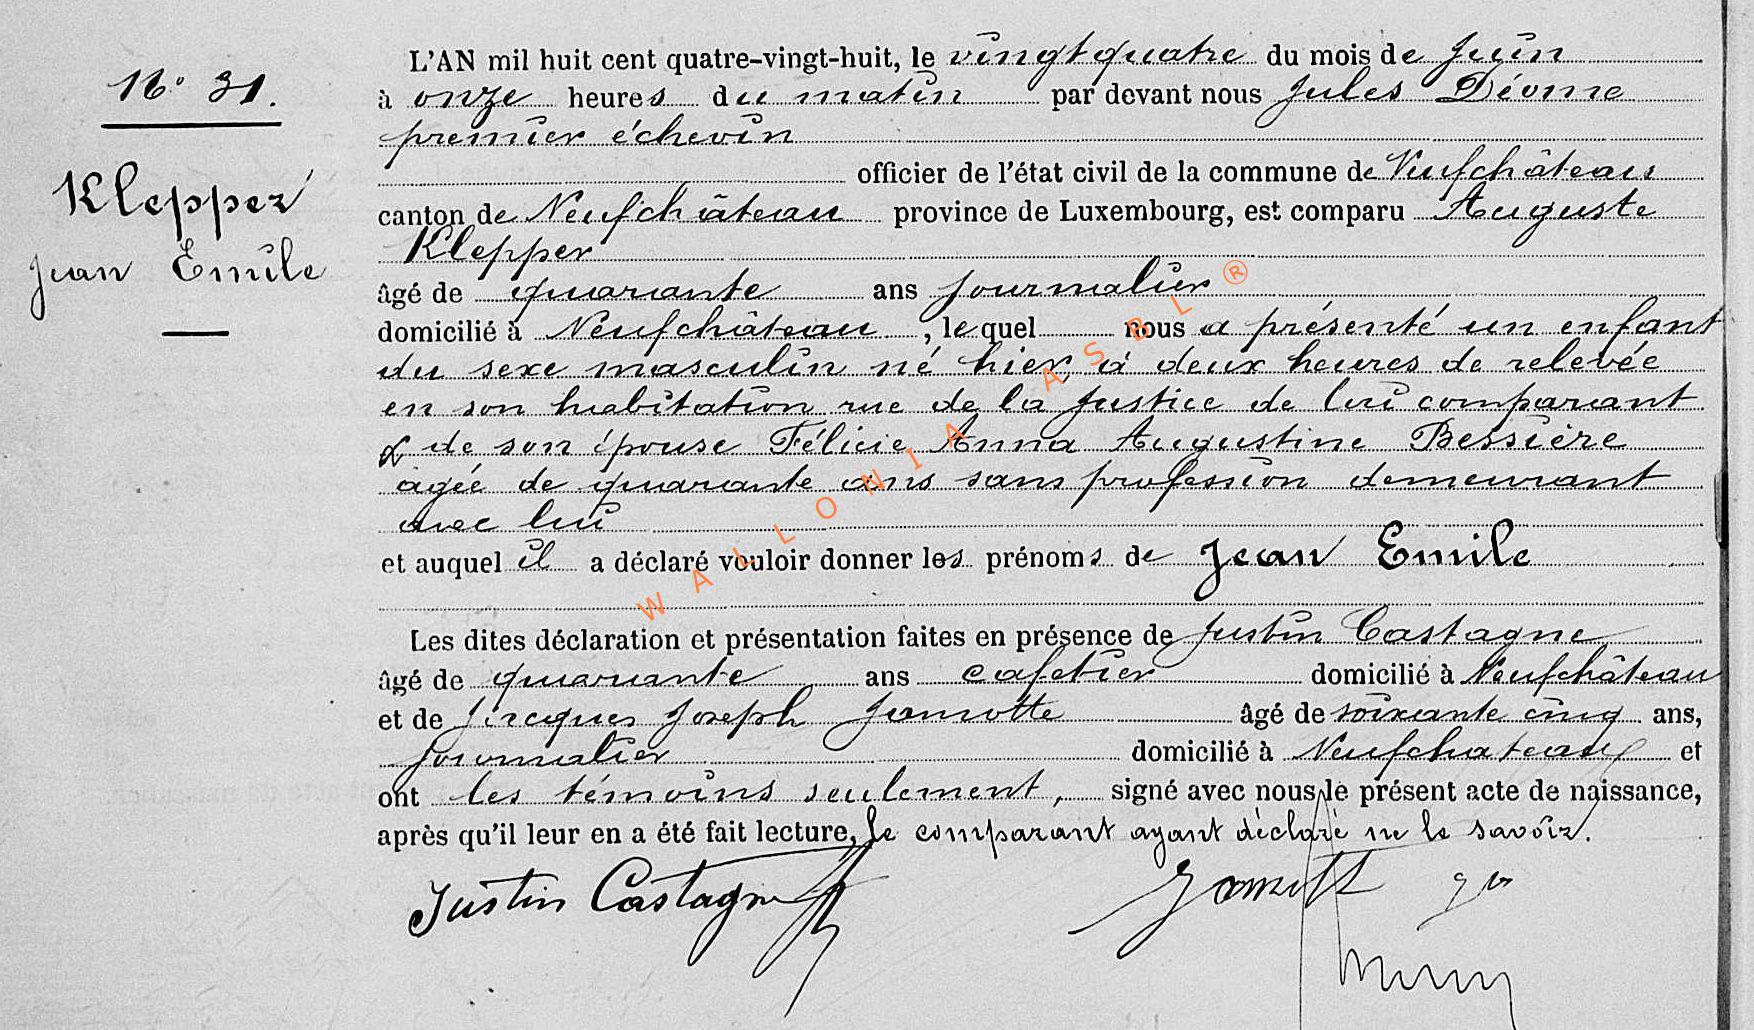 N° 31.
Klepper
Jean Emile
L'AN mil huit cent quatre-vingt-huit, le vingt quatre du mois de Juin
à onze heures du matin par devant nous Jules Déome
premier échevin
officier de l'état civil de la commune de Neufchâteau
canton de Neufchâteau province de Luxembourg, est comparu Auguste
Klepper
âgé de quarante ans journalier
domicilié à Neufchâteau, lequel nous a présenté un enfant
du sexe masculin né hier, à deux heures de relevée
en son habitation rue de la Justice de lui comparant
& de son épouse Félicie Anna Augustine Bessière
agée de quarante ans sans profession demeurant
avec lui
et auquel il a déclaré vouloir donner les prénoms de Jean Emile
Les dites déclaration et présentation faites en présence de Justin Castagne
âgé de quarante ans cafetier domicilié à Neufchâteau
et de Jacques Joseph Jamotte âgé de soixante cinq ans,
journalier domicilié à Neufchateau et
ont les témoins seulement, signé avec nous le présent acte de naissance,
après qu'il leur en a été fait lecture, le comparant ayant déclaré ne le savoir.
Justin Castagne
WALLONIA ASBL ®